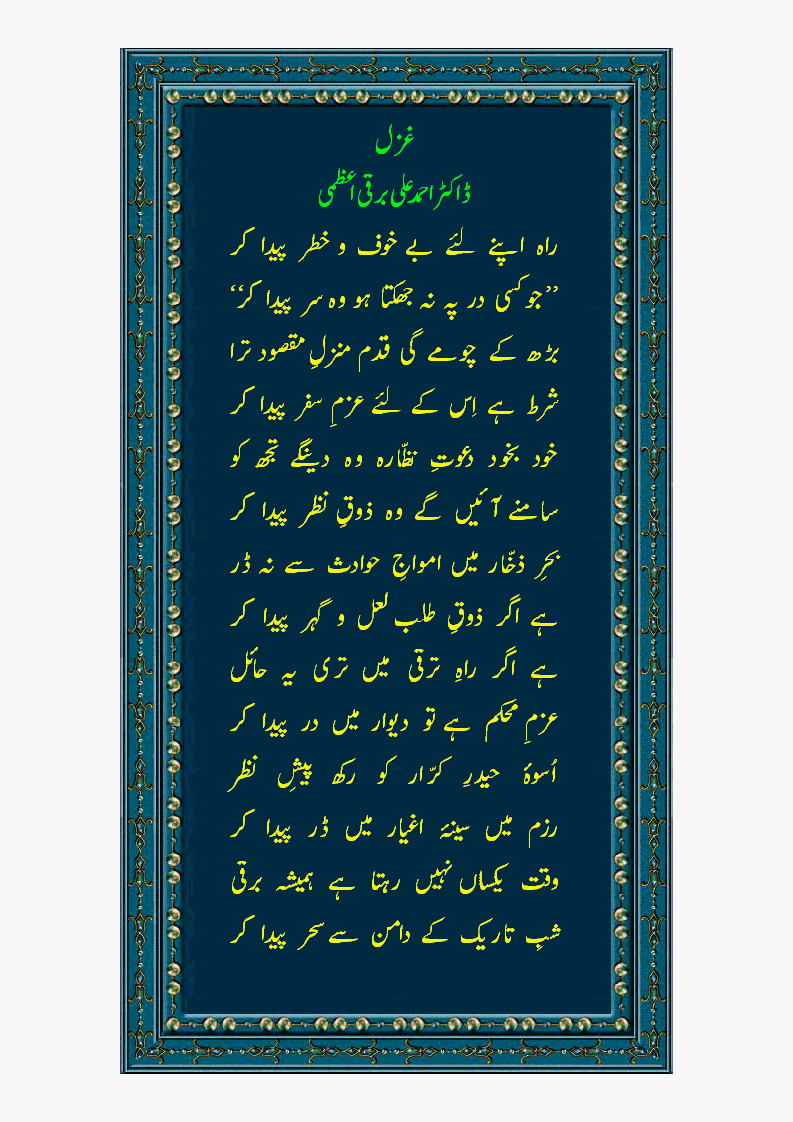 غزل
ڈاکٹر احمد علی برقی اعظمی
راہ اپنے لئے بے خوف و خطر پیدا کر
’’جو کسی در پہ نہ جھکتا ہو وہ سر پیدا کر‘‘
بڑھ کے چومے گی قدم منزلِ مقصود ترا
شرط ہے اِس کے لئے عزمِ سفر پیدا کر
خود بخود دعوتِ نظّارہ وہ دینگے تجھ کو
سامنے آئیں گے وہ ذوقِ نظر پیدا کر
بحرِ ذخّار میں امواجِ حوادث سے نہ ڈر
ہے اگر ذوقِ طلب لعل و گہر پیدا کر
ہے اگر راہِ ترقی میں تری یہ حائل
عزمِ محکم ہے تو دیوار میں در پیدا کر
اُسوۂ حیدرِ کرّار کو رکھ پیشِ نظر
رزم میں سینۂ اغیار میں ڈر پیدا کر
وقت یکساں نہیں رہتا ہے ہمیشہ برقی
شبِ تاریک کے دامن سے سحر پیدا کر